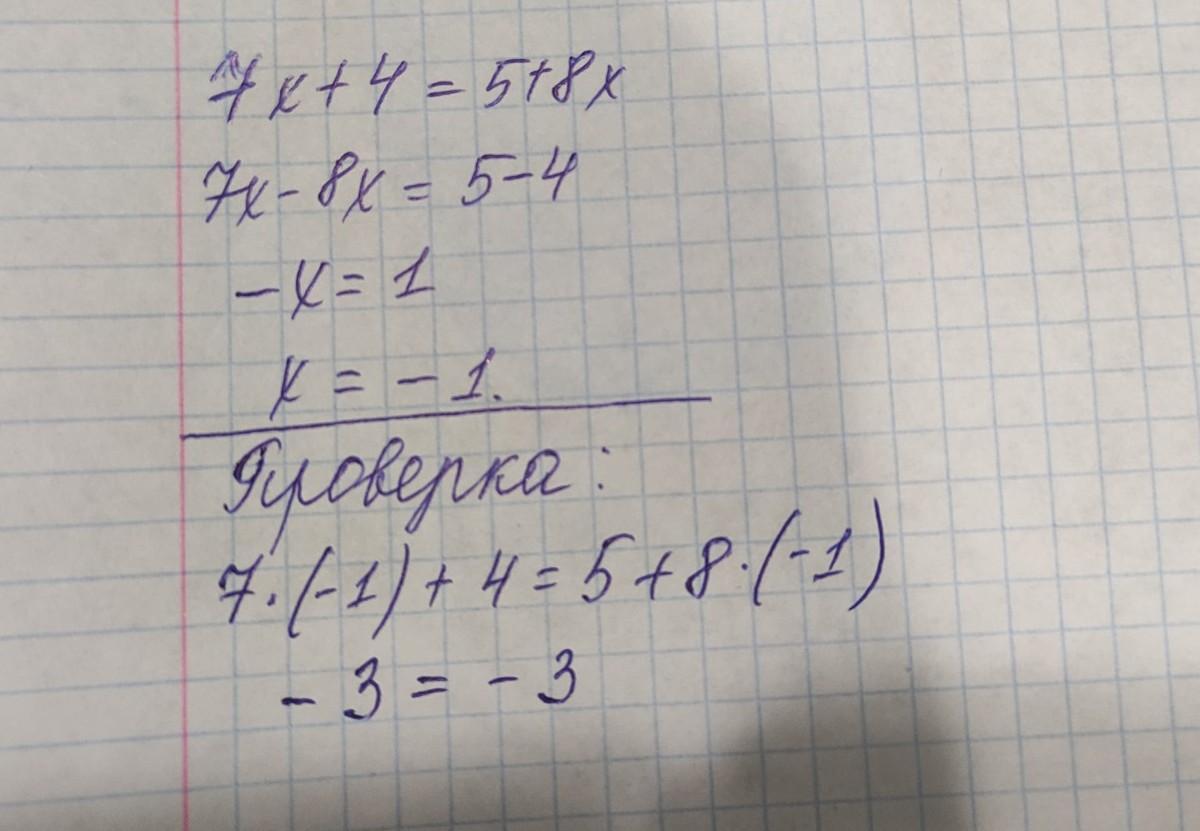 7x+4=5+8x
7x-8x=5-4
-x=1
x=-1.
Проверка:
7·(-1)+4=5+8·(-1)
-3=-3